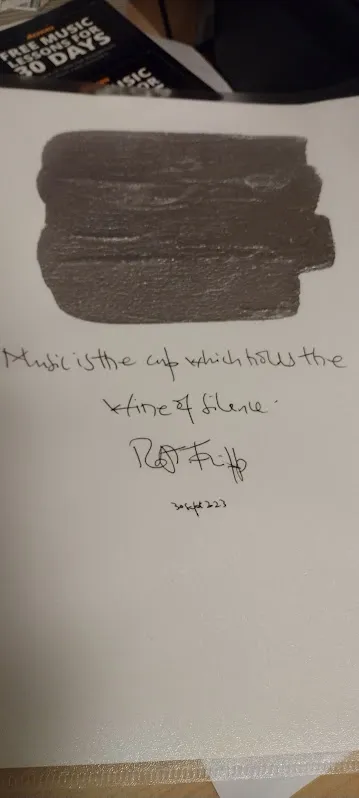 FREE MUSIC
LESSONS FOR
30 DAYS
Music is the cup which holds the
Wine of Silence.
Robert Fripp
30 Sept 2023